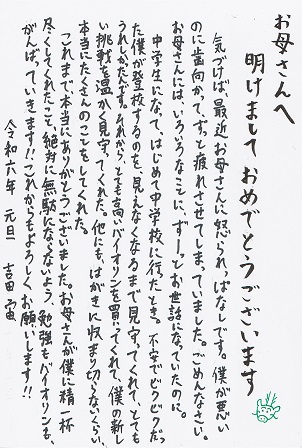 お母さんへ
明けましておめでとうございます
気づけば、最近お母さんに怒られっぱなしです。僕が悪い
のに歯向かって、ずっと疲れさせてしまっていました。ごめんなさい。
お母さんには、いろいろなことに、ずーっとお世話になっていたのに。
中学生になって、はじめて中学校に行ったとき。不安でビクビクだっ
た僕が登校するのを、見えなくなるまで見守ってくれて、とても
うれしかったです。それから、とても高いバイオリンを買ってくれて、僕の新し
い挑戦を温かく見守ってくれた。他にも、はがきに収まり切らないくらい、
本当にたくさんのことをしてくれた。
これまで本当にありがとうございました。お母さんが僕に精一杯
尽くしてくれたこと、絶対に無駄にならないよう、勉強もバイオリンも、
がんばっていきます!!これからもよろしくお願いします!!
令和六年 元旦 吉田 宙